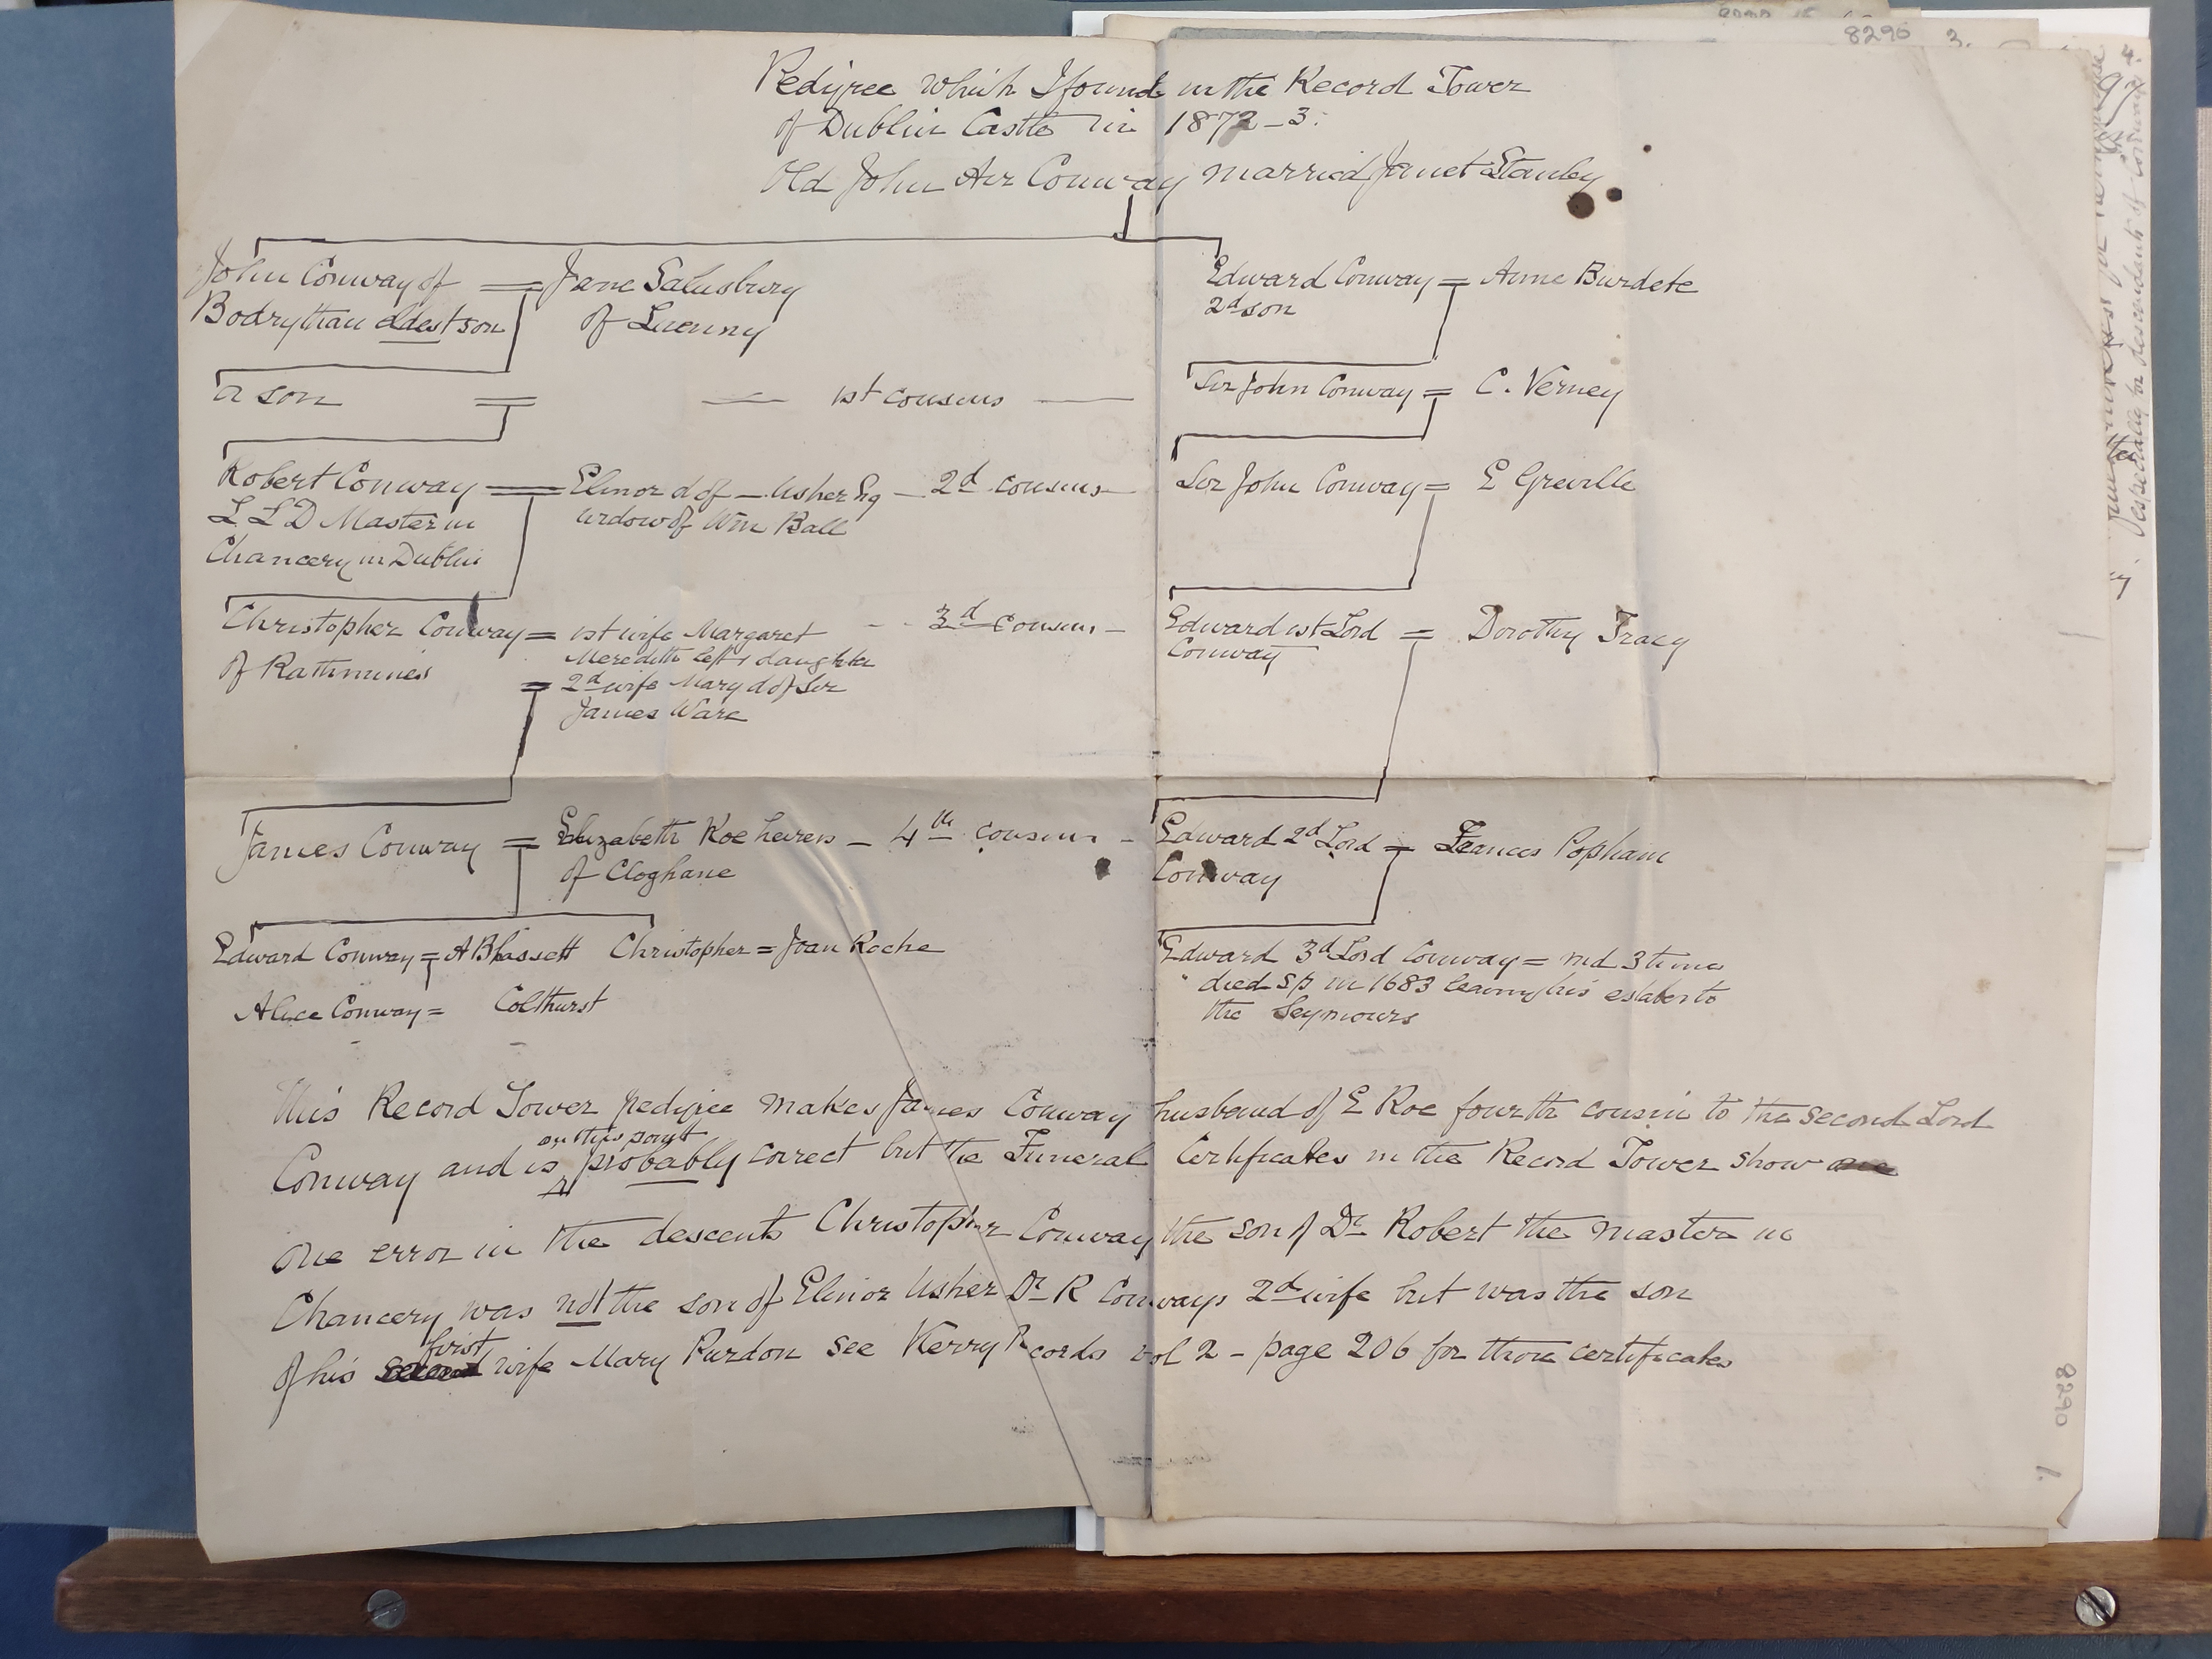 Pedigree which I found in the Record Tower
of Dublin Castle in 1872-3.
Old John Aer Conway married Janet Stanley
John Conway of = Jane Salusbury
Bodrythan eldest son of Luenny
Edward Conway = Anne Burdete
2d son
a son = — 1st cousins — Sir John Conway = C. Verney
Robert Conway = Elinor d of — Usher Esq — 2d cousins — Sir John Conway = E Greville
L L D Master in widow of Wm Ball
Chancery in Dublin
Christopher Conway = 1st wife Margaret - - 3d cousins — Edward 1st Lord = Dorothy Tracy
of Rathmines Meredith left 1 daughter Conway
= 2d wife Mary d of Sir
James Ware
James Conway = Elizabeth Roe heiress — 4th cousins — Edward 2d Lord = Frances Popham
of Cloghane Conway
Edward Conway = A Blassett Christopher = Joan Roche
Alice Conway = Colthurst
Edward 3d Lord Conway = md 3 times
died sp in 1683 leaving his estates to
the Seymours
This Record Tower pedigree makes James Conway husband of E Roe fourth cousin to the second Lord
Conway and is on this point probably correct but the Funeral Certificates in the Record Tower show one
one error in the descents Christopher Conway the son of Dr Robert the Master in
Chancery was not the son of Elinor Usher Dr R Conways 2d wife but was the son
of his second first wife Mary Purdon see Kerry Records vol 2 - page 206 for those certificates
8296 3.
8290 1.